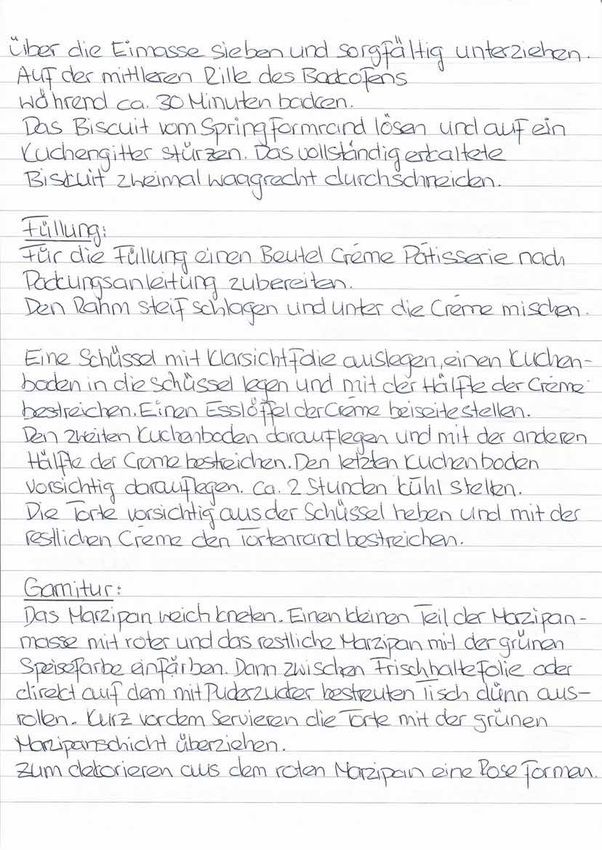 Über die Eimasse sieben und sorgfältig unterziehen.
Auf der mittleren Rille des Backofens
während ca. 30 Minuten backen.
Das Biscuit vom Springformrand lösen und auf ein
Kuchengitter stürzen. Das vollständig erkaltete
Biskuit zweimal waagrecht durchschneiden.
Füllung:
Für die Füllung einen Beutel Crème Pâtisserie nach
Packungsanleitung zubereiten.
Den Rahm steif schlagen und unter die Crème mischen.
Eine Schüssel mit Klarsichtfolie auslegen, einen Kuchen-
boden in die Schüssel legen und mit der Hälfte der Crème
bestreichen. Einen Esslöffel der Crème beiseite stellen.
Den zweiten Kuchenboden darauflegen und mit der anderen
Hälfte der Crome bestreichen. Den letzten Kuchenboden
vorsichtig darauflegen. ca. 2 Stunden kühl stellen.
Die Torte vorsichtig aus der Schüssel heben und mit der
restlichen Crème den Tortenrand bestreichen.
Garnitur:
Das Marzipan weich kneten. Einen kleinen Teil der Marzipan-
masse mit roter und das restliche Marzipan mit der grünen
Speisefarbe einfärben. Dann zwischen Frischhaltefolie oder
direkt auf dem mit Puderzucker bestreuten Tisch dünn aus-
rollen. Kurz vor dem Servieren die Torte mit der grünen
Marzipanschicht überziehen.
Zum dekorieren aus dem roten Marzipan eine Rose formen.